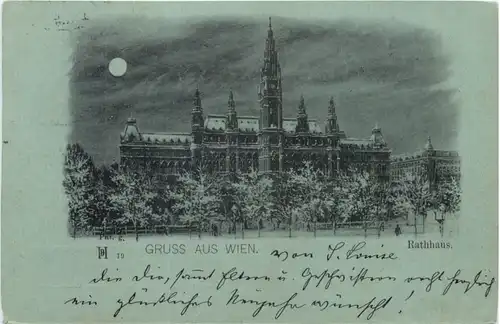 Pat. g.
19
GRUSS AUS WIEN.
Rathhaus.
von S. Louise
die Dir, sammt Eltern u. Geschwistern recht herzlich
ein glückliches Neujahr wünscht!